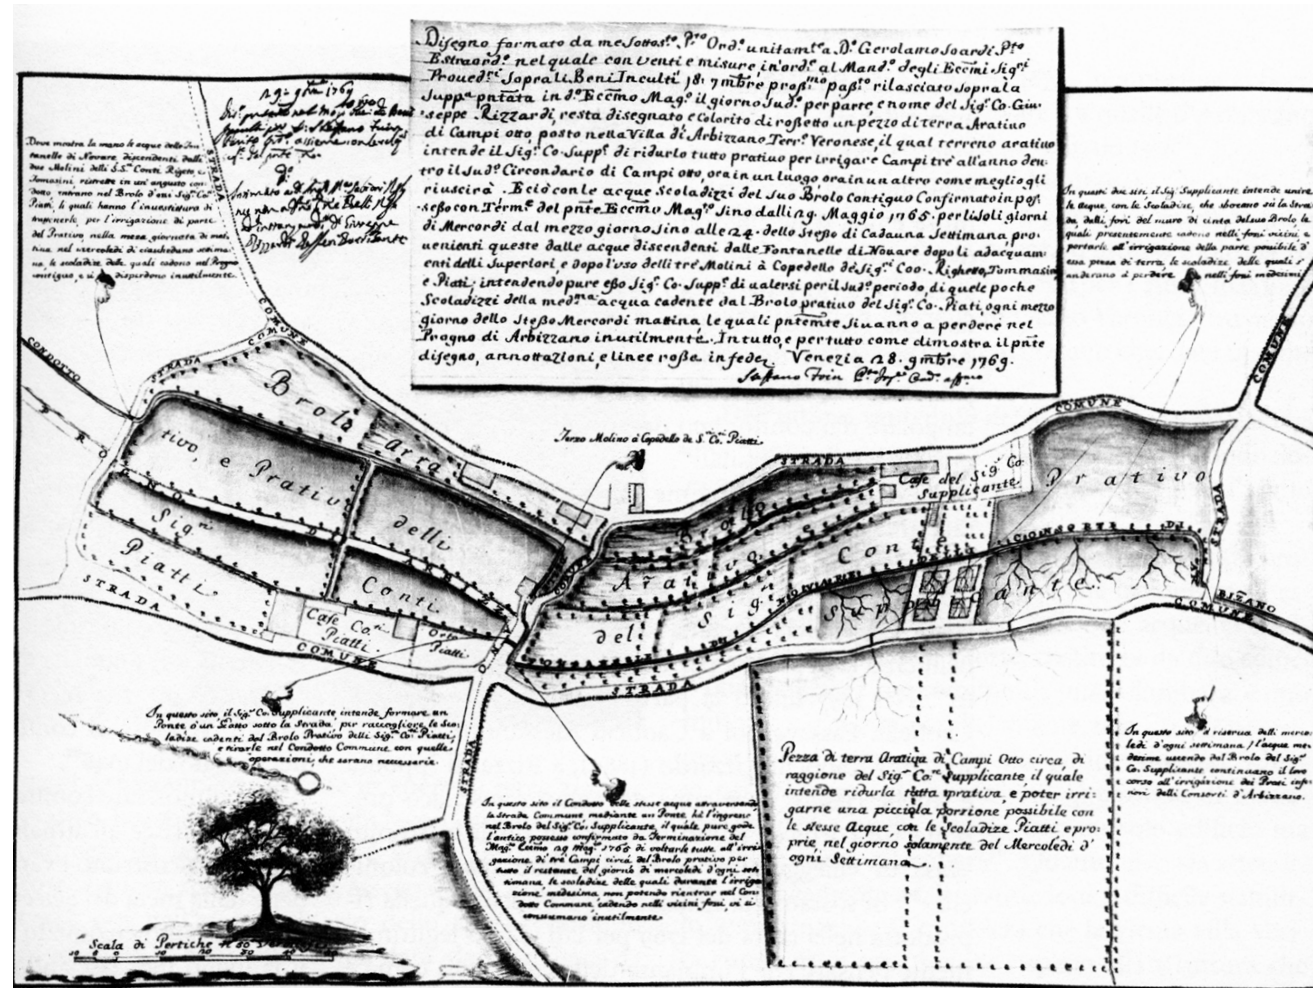 Disegno formato da me Sottos.to P.to Ord.o unitam.te a D.o Gerolamo Soardi P.to
Estraord.o nel quale con venti e misure, in ord.e al Mand.o degli Ecc̃mi Sig.ri
Proued.ri Sopra li Beni Inculti 18: 7m̃bre proß.mo paß.to rilasciato sopra la
Supp.a pñtata in d.o Ecc̃mo Mag.o il giorno sud.o per parte, e nome del Sig.r Co: Giu-
seppe Rizzardi, resta disegnato e Colorito di roßetto un pezzo di terra Aratiuo
di Campi otto posto nella Villa di Arbizzano Terr.o Veronese, il qual terreno aratiuo
intende il Sig.r Co: Supp.e di ridurlo tutto pratiuo per irrigare Campi trè all'anno den-
tro il sud.o Circondario di Campi otto, ora in un luogo ora in un altro come meglio gli
riuscirà. E ciò con le acque Scoladizzi del suo Brolo Contiguo Confirmato in pos-
seßo con Term.e del pñte Ecc̃mo Mag.o sino dalli 29. Maggio 1765. per li soli giorni
di Mercordi dal mezzo giorno sino alle 24. dello Steßo di Cadauna Settimana, pro-
uenienti queste dalle acque discendenti dalle Fontanelle di Nouare dopo li adacquam-
enti delli Superiori, e dopo l'uso delli trè Molini à Copedello de Sig.ri Coo: Righetto, Tommasini
e Piati; intendendo pure eßo Sig.r Co: Supp.e di ualersi per il sud.o periodo, di quelle poche
Scoladizzi della med.ma acqua cadente dal Brolo pratiuo del Sig.r Co: Piati, ogni mezzo
giorno dello Steßo Mercordi mattina le quali pñtem̃te si uanno a perdere nel
Progno di Arbizzano inutilmente. In tutto, e per tutto come dimostra il pñte
disegno, annottazioni, e linee roße in fede, Venezia 28. 9m̃bre 1769.
Steffano Foin
29: 9bre 1769
Doue mostra la mano le acque delle Fon-
tanelle di Novare discendenti dalli
due Molini delli S.S.ri Conti Rigeto, e
Tomasini ristrette in un'angusto con-
dotto entrano nel Brolo d'essi Sig.ri Co:
Piati, le quali hanno l'inuestitura di
trattenerle, per l'irrigazione di parte
del Pratiuo nella mezza giornata di mat-
tina nel mercoledi di ciascheduna settima-
na, le scoladize delle quali cadono nel Progno
contiguo, e si disperdono inutilmente.
In questi due siti il Sig.r Supplicante intende unire
le acque con le Scoladizze, che sboreno sù la Stra-
da dalli fori del muro di cinta del suo Brolo le
quali presentemente cadono nelli fossi vicini, e
portarle all'irrigazione della parte possibile d'
essa pezza di terra, le scoladizze delle quali s'
anderano à perdere nelli fossi medesimi
CONDOTTO
STRADA
COMUNE
STRADA
STRADA COMUNE
Brolo arra
tivo e Prativo
delli
Sign.ri
Conti
Piatti
PROGNO DI ARBIZZANO
STRADA
COMUNE
Case Co:ti
Piatti
Orto
Piatti
Terzo Molino à Copedello de S.ri Co: Piatti
STRADA
COMUNE
COMUNE
Case del Sig.r Co:
Supplicante
Brolo
Arativo e
Prativo
del Sig.r Conte
Supplicante
CONSORTI DI
STRADA
COMUNE
BIZANO
STRADA
STRADA
In questo sito il Sig.r Co: Supplicante intende formare un
Ponte ò un Scotto sotto la Strada per raccogliere le Sco-
ladize cadenti del Brolo Prativo delli Sig.ri Co: Piatti,
e tirarle nel Condotto Commune con quelle
operazioni, che sarano necessarie
In questo sito il Condotto delle stesse acque attraversando
la Strada Commune mediante un Ponte, hà l'ingreso
nel Brolo del Sig.r Co: Supplicante, il quale pure gode
l'antico possesso confirmato da Terminazione del
Mag.to Ecc̃mo 29 Mag.o 1765 di voltarle tutte all'irri-
gazione di trè Campi circa del Brolo prativo per
tutto il restante del giorno di mercoledi d'ogni set-
timana, le scoladize delle quali durante l'irriga-
zione medesima non potendo rientrar nel Con-
dotto Commune cadendo nelli vicini fossi, vi si
consumano inutilmente
Pezza di terra Arativa di Campi Otto circa, di
raggione del Sig.r Co:te Supplicante il quale
intende ridurla tutta prativa, e poter irri-
garne una picciola porsione possibile con
le stesse Acque, con le Scoladize Piatti e pro-
prie nel giorno solamente del Mercoledi d'
ogni Settimana
In questo sito si riserva delli merco-
ledi d'ogni settimana l'acque me-
desime uscendo dal Brolo del Sig.r
Co: Supplicante continuano il loro
corso all'irrigazione dei Prati infe-
riori delli Consorti d'Arbizzano.
Scala di Pertiche n: 50 Veronesi
10 0 10 20 30 40 50